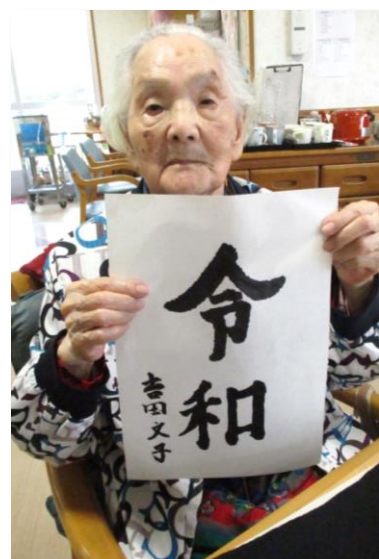 令和
吉田文子